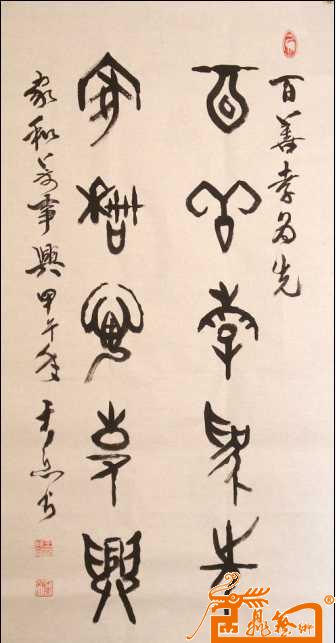 百善孝为先
百善孝为先
家和万事兴
家和万事興甲午年